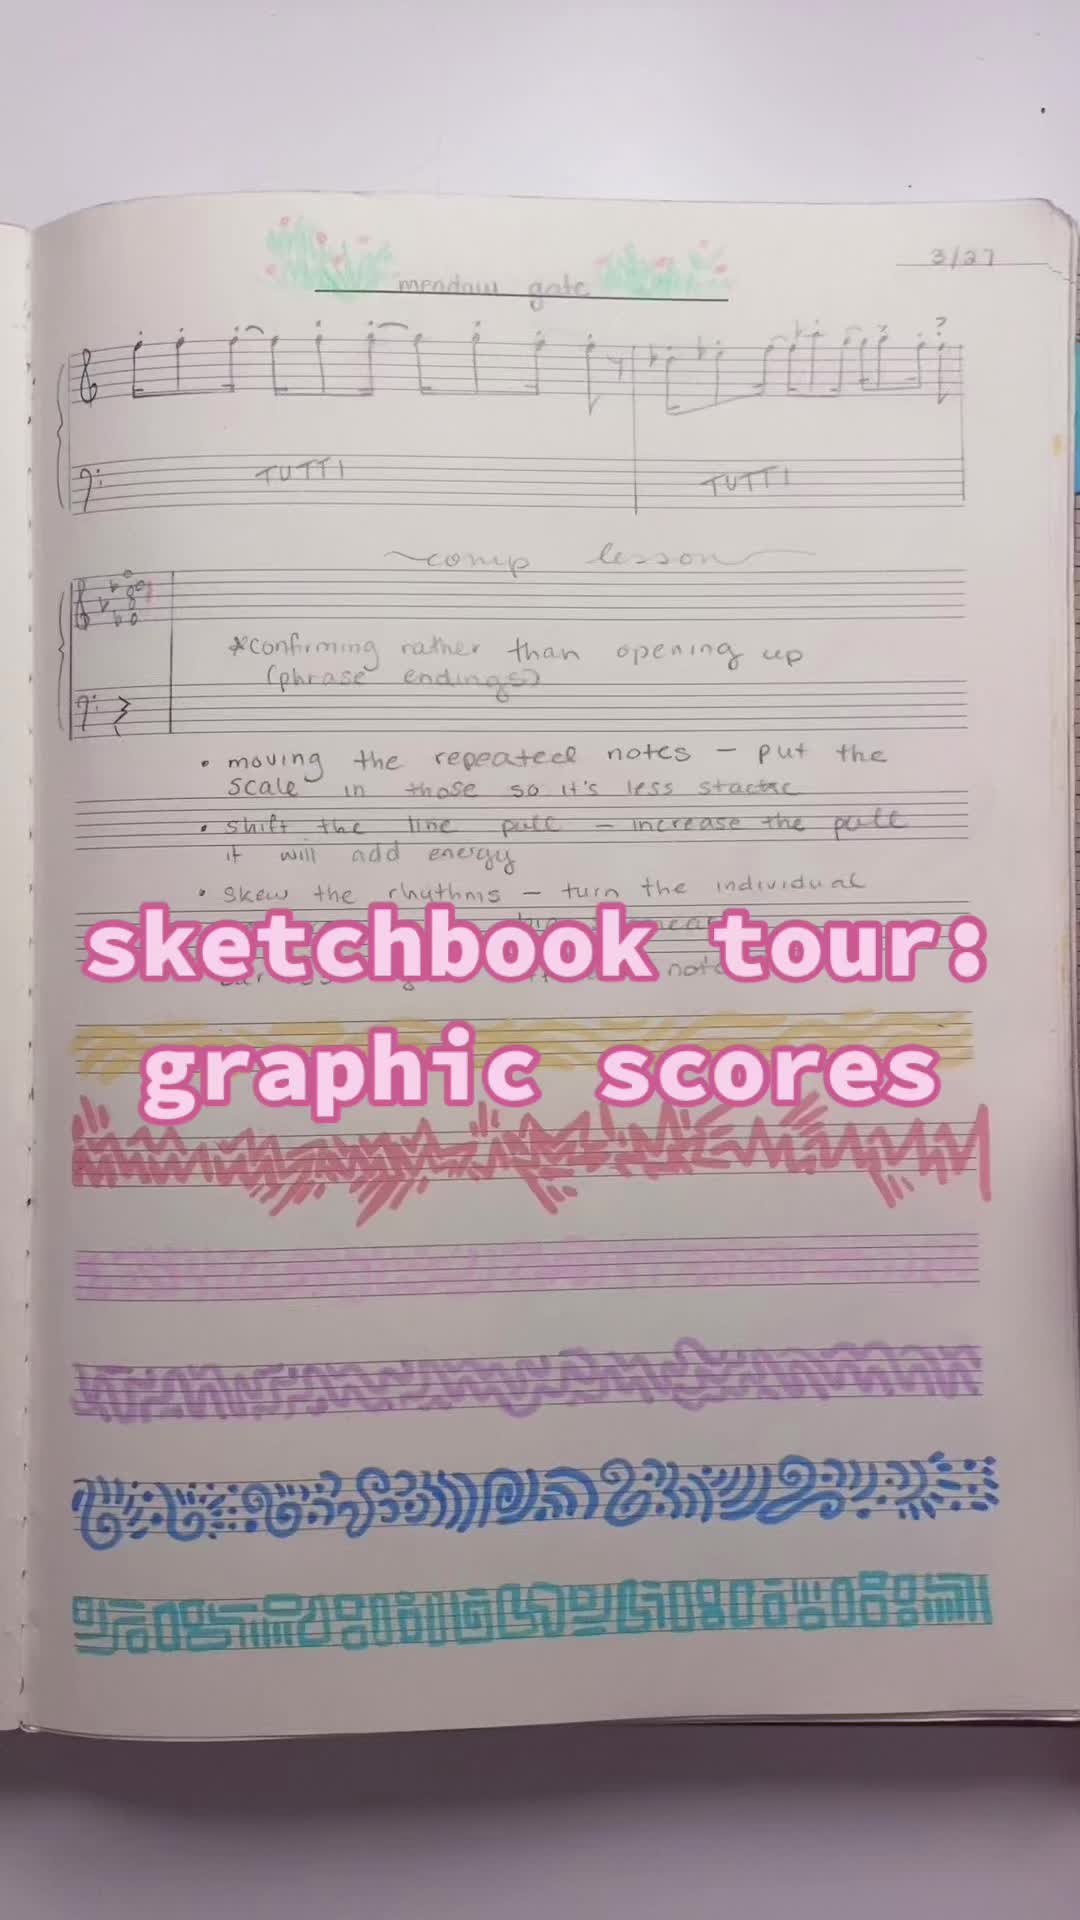 3/27
meadow gate
TUTTI TUTTI
~comp lesson~
*confirming rather than opening up
(phrase endings)
• moving the repeated notes – put the
scale in those so it's less static
• shift the line pull – increase the pull
it will add energy
• skew the rhythms – turn the individual
sketchbook tour:
graphic scores